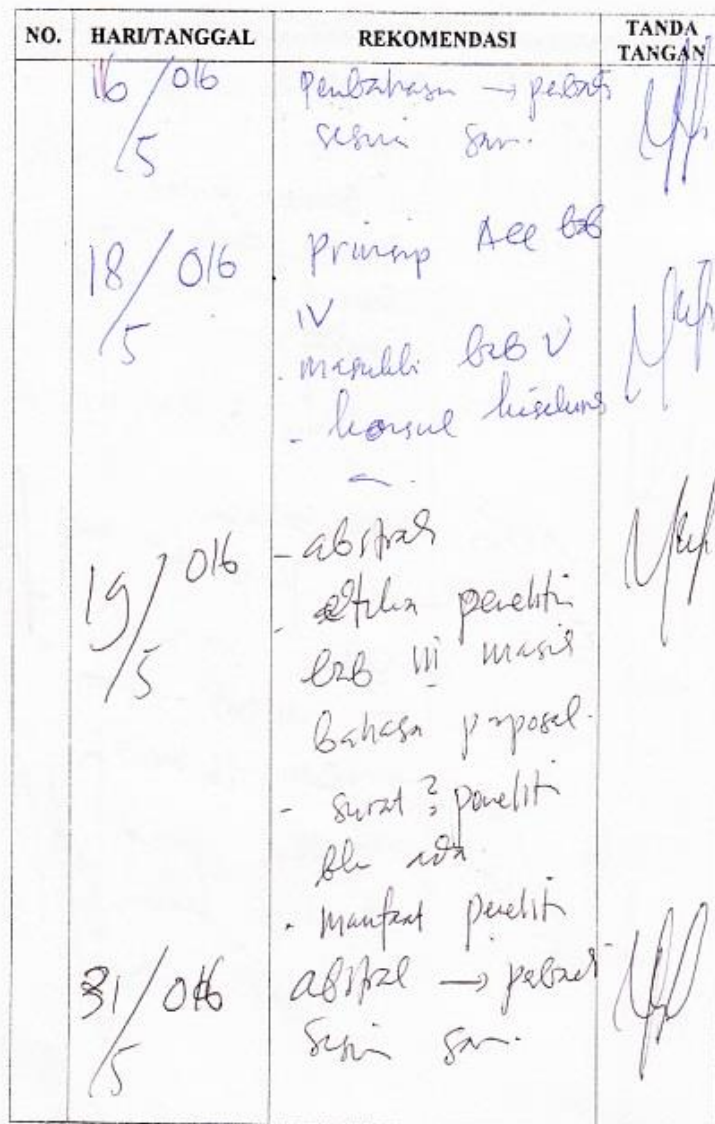 NO. HARI/TANGGAL REKOMENDASI TANDA TANGAN
16/5 016 Pembahasan → perbaiki
sesuai saran.
18/5 016 Prinsip Acc bab
IV
- masukkan bab V
- konsul keseluruhan
19/5 016 - abstrak
- etika penelitian
bab III masih
bahasa proposal.
- surat2 penelitian
blm ada
- manfaat penelitian
31/5 016 abstrak → perbaiki
sesuai saran.